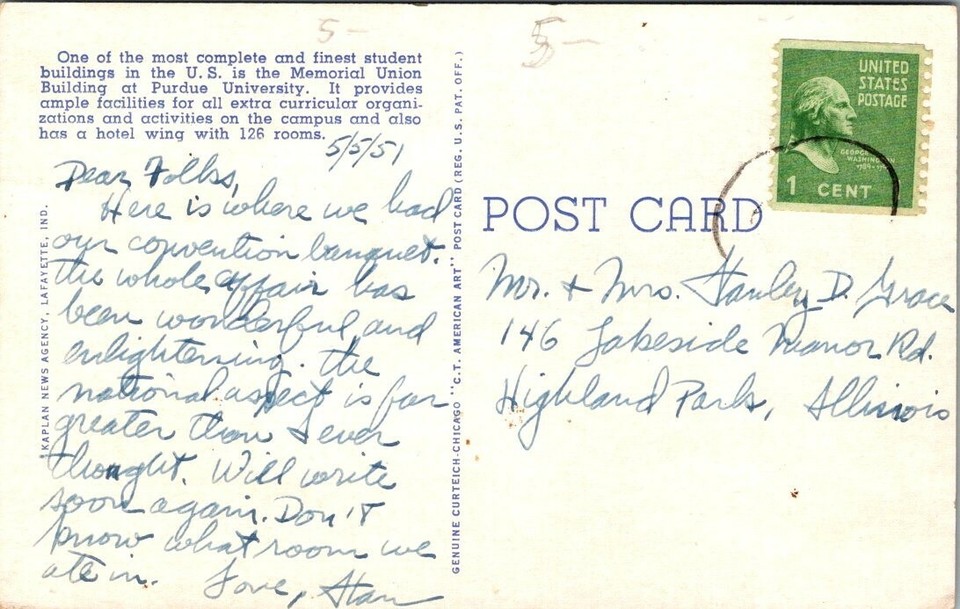 5-
5-
One of the most complete and finest student
buildings in the U. S. is the Memorial Union
Building at Purdue University. It provides
ample facilities for all extra curricular organi-
zations and activities on the campus and also
has a hotel wing with 126 rooms.
5/5/51
Dear Folks,
Here is where we had
our convention banquet.
the whole affair has
been wonderful and
enlightening. the
national aspect is far
greater than I ever
thought. Will write
soon again. Don't
know what room we
ate in. Love, Stan
KAPLAN NEWS AGENCY, LAFAYETTE, IND.
GENUINE CURTEICH-CHICAGO "C.T. AMERICAN ART" POST CARD (REG. U.S. PAT. OFF.)
POST CARD
UNITED
STATES
POSTAGE
GEORGE
WASHINGTON
1 CENT
Mr. + Mrs. Stanley D. Grace
146 Lakeside Manor Rd.
Highland Park, Illinois